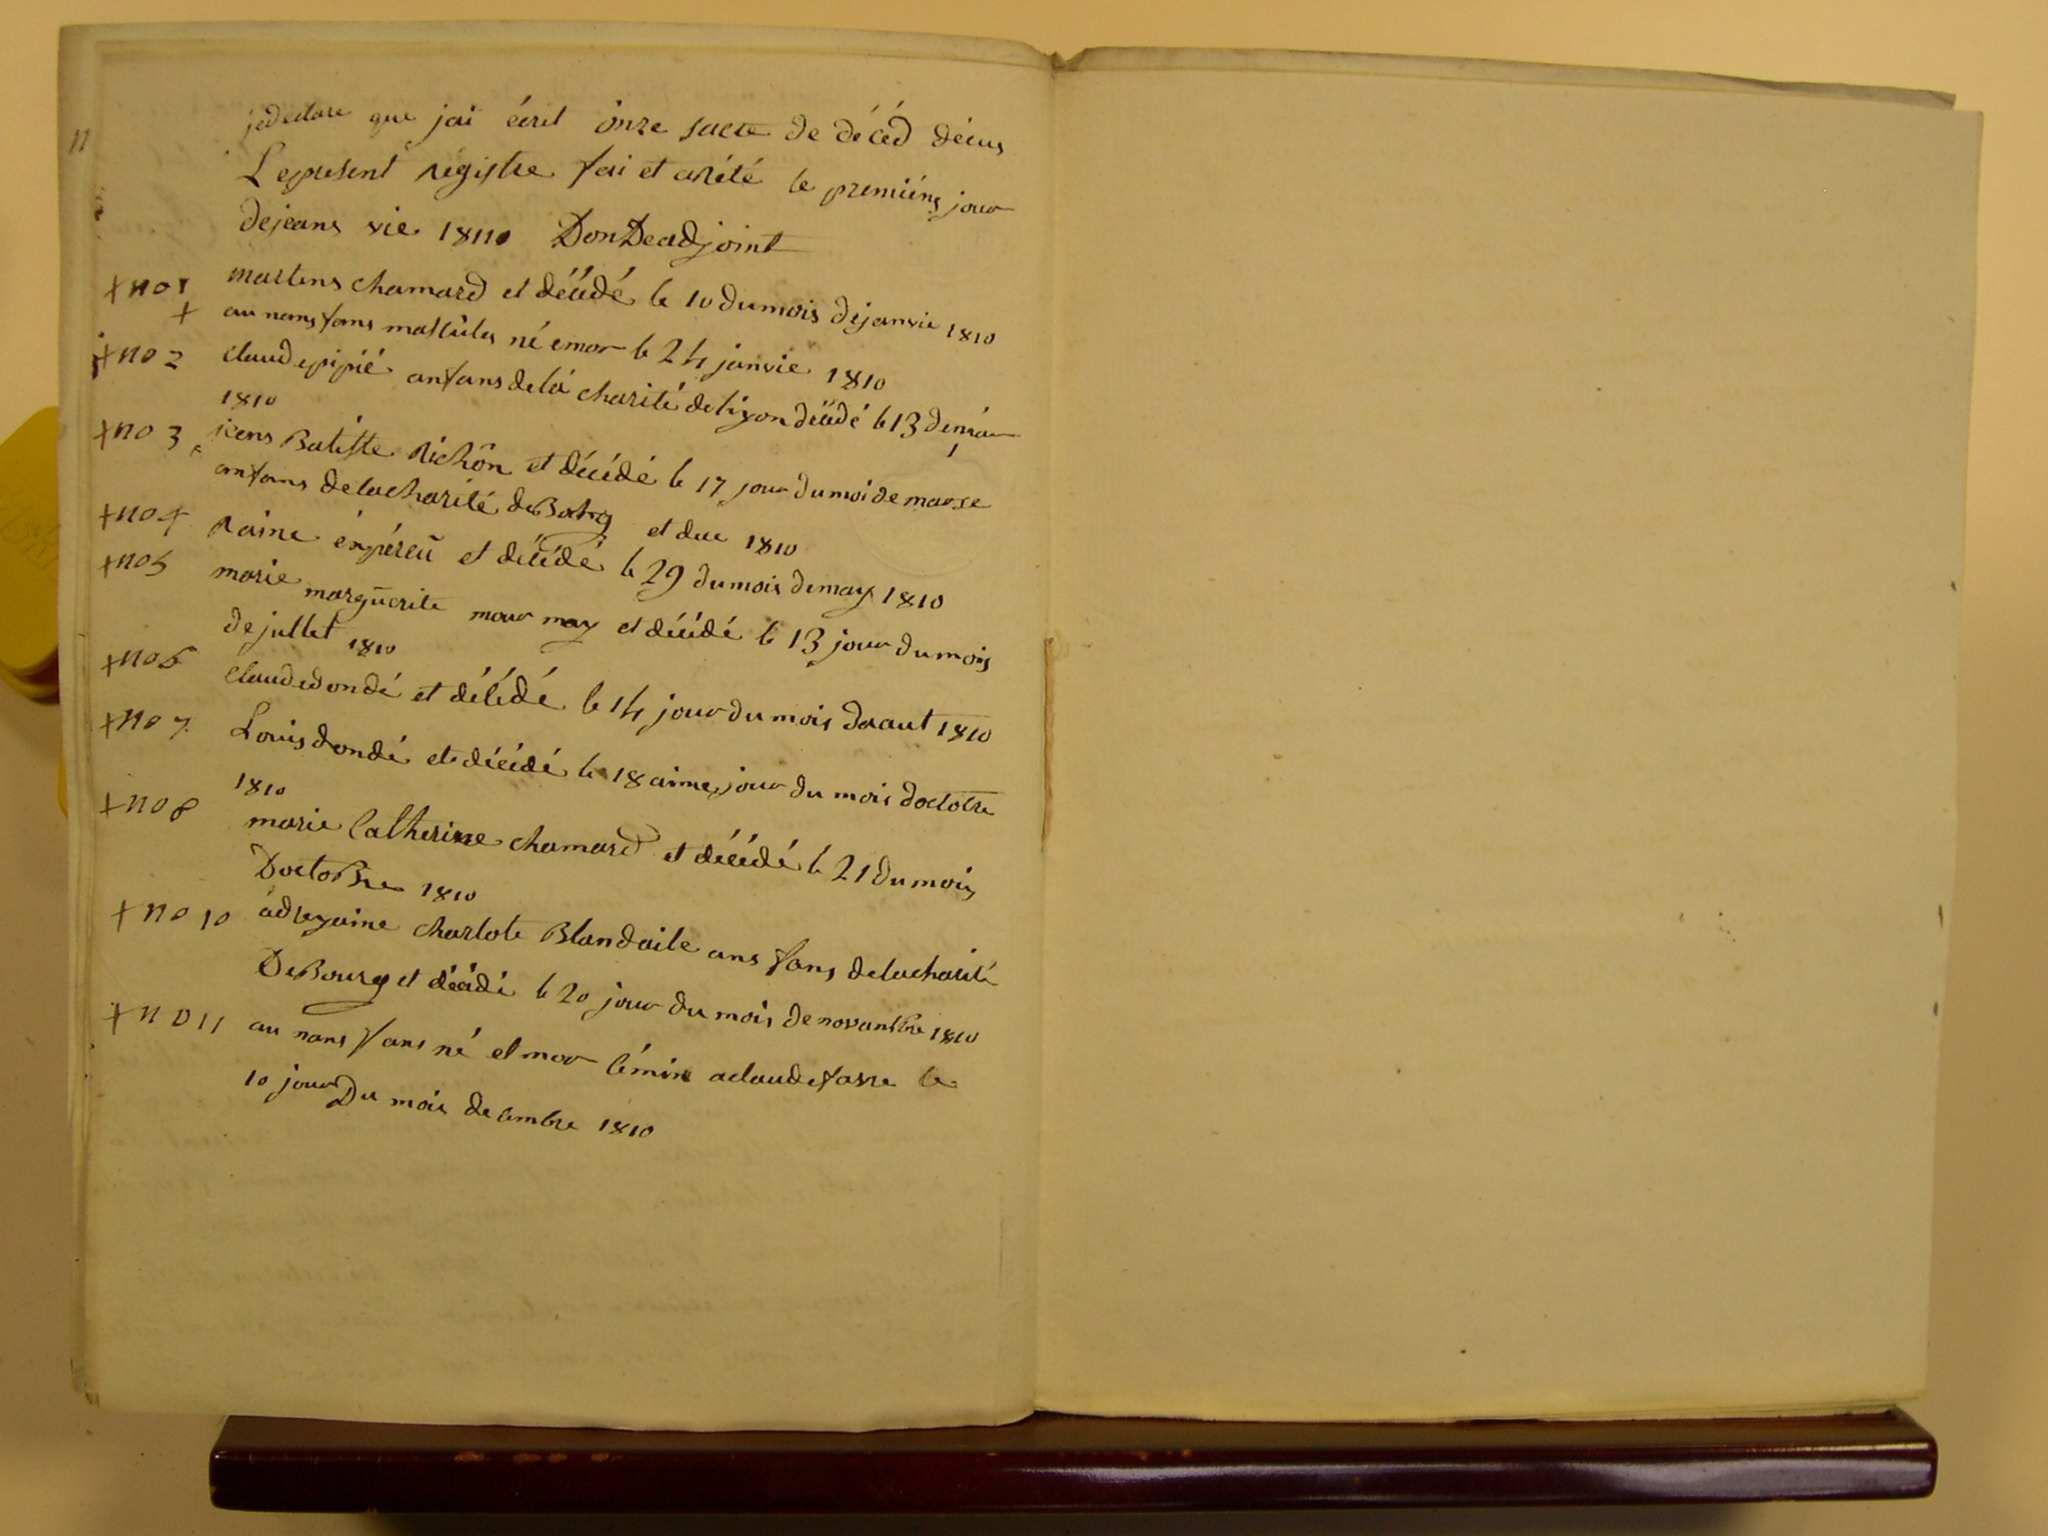 11
jedeclare que jai écrit onze sacte de décéd décus
Lepresent registre fai et arété le premiéns jour
dejeans vie 1811 DonDeadjoint
+ no 1 martens chamard et décédé le 10 dumois dejanvie 1810
+ au nans fans mascules né emor le 24 janvie 1810
+ no 2 claudepipié anfans delá charité deliyon décédé le 13 demár
1810
+ no 3 jcens Batiste Richôn et décédé le 17 jour dumoi de marse
anfans delacharité deBourg et duc 1810
+ no 4 Raine énpéreu et décédé le 29 dumois demay 1810
+ no 5 marie marguerite mour may et décédé le 13 jour dumois
dejullet 1810
+ no 6 claudedondé et décédé le 14 jour du mois daaut 1810
+ no 7 Louis dondé et décédé le 18 aime jour du mois doctobre
1810
+ no 8 marie Catherine chamard et décédé le 21 du mois
Doctobre 1810
+ no 10 adreyaine charlote Blandaile ans fans delacharité
DeBourg et décédé le 20 jour du mois de novambre 1810
+ no 11 au nans fans né et mor lémin aclaudefavre le
10 jour Du mois decembre 1810